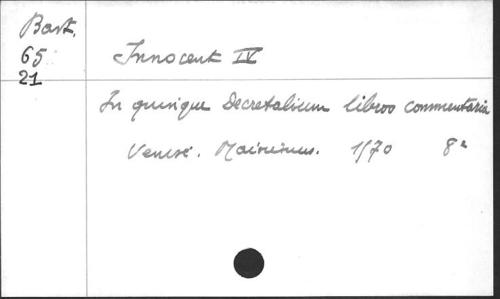 Bart.
65
21
Innocent IV
In quinque Decretalium libros commentaria
Venise. 1570 8°